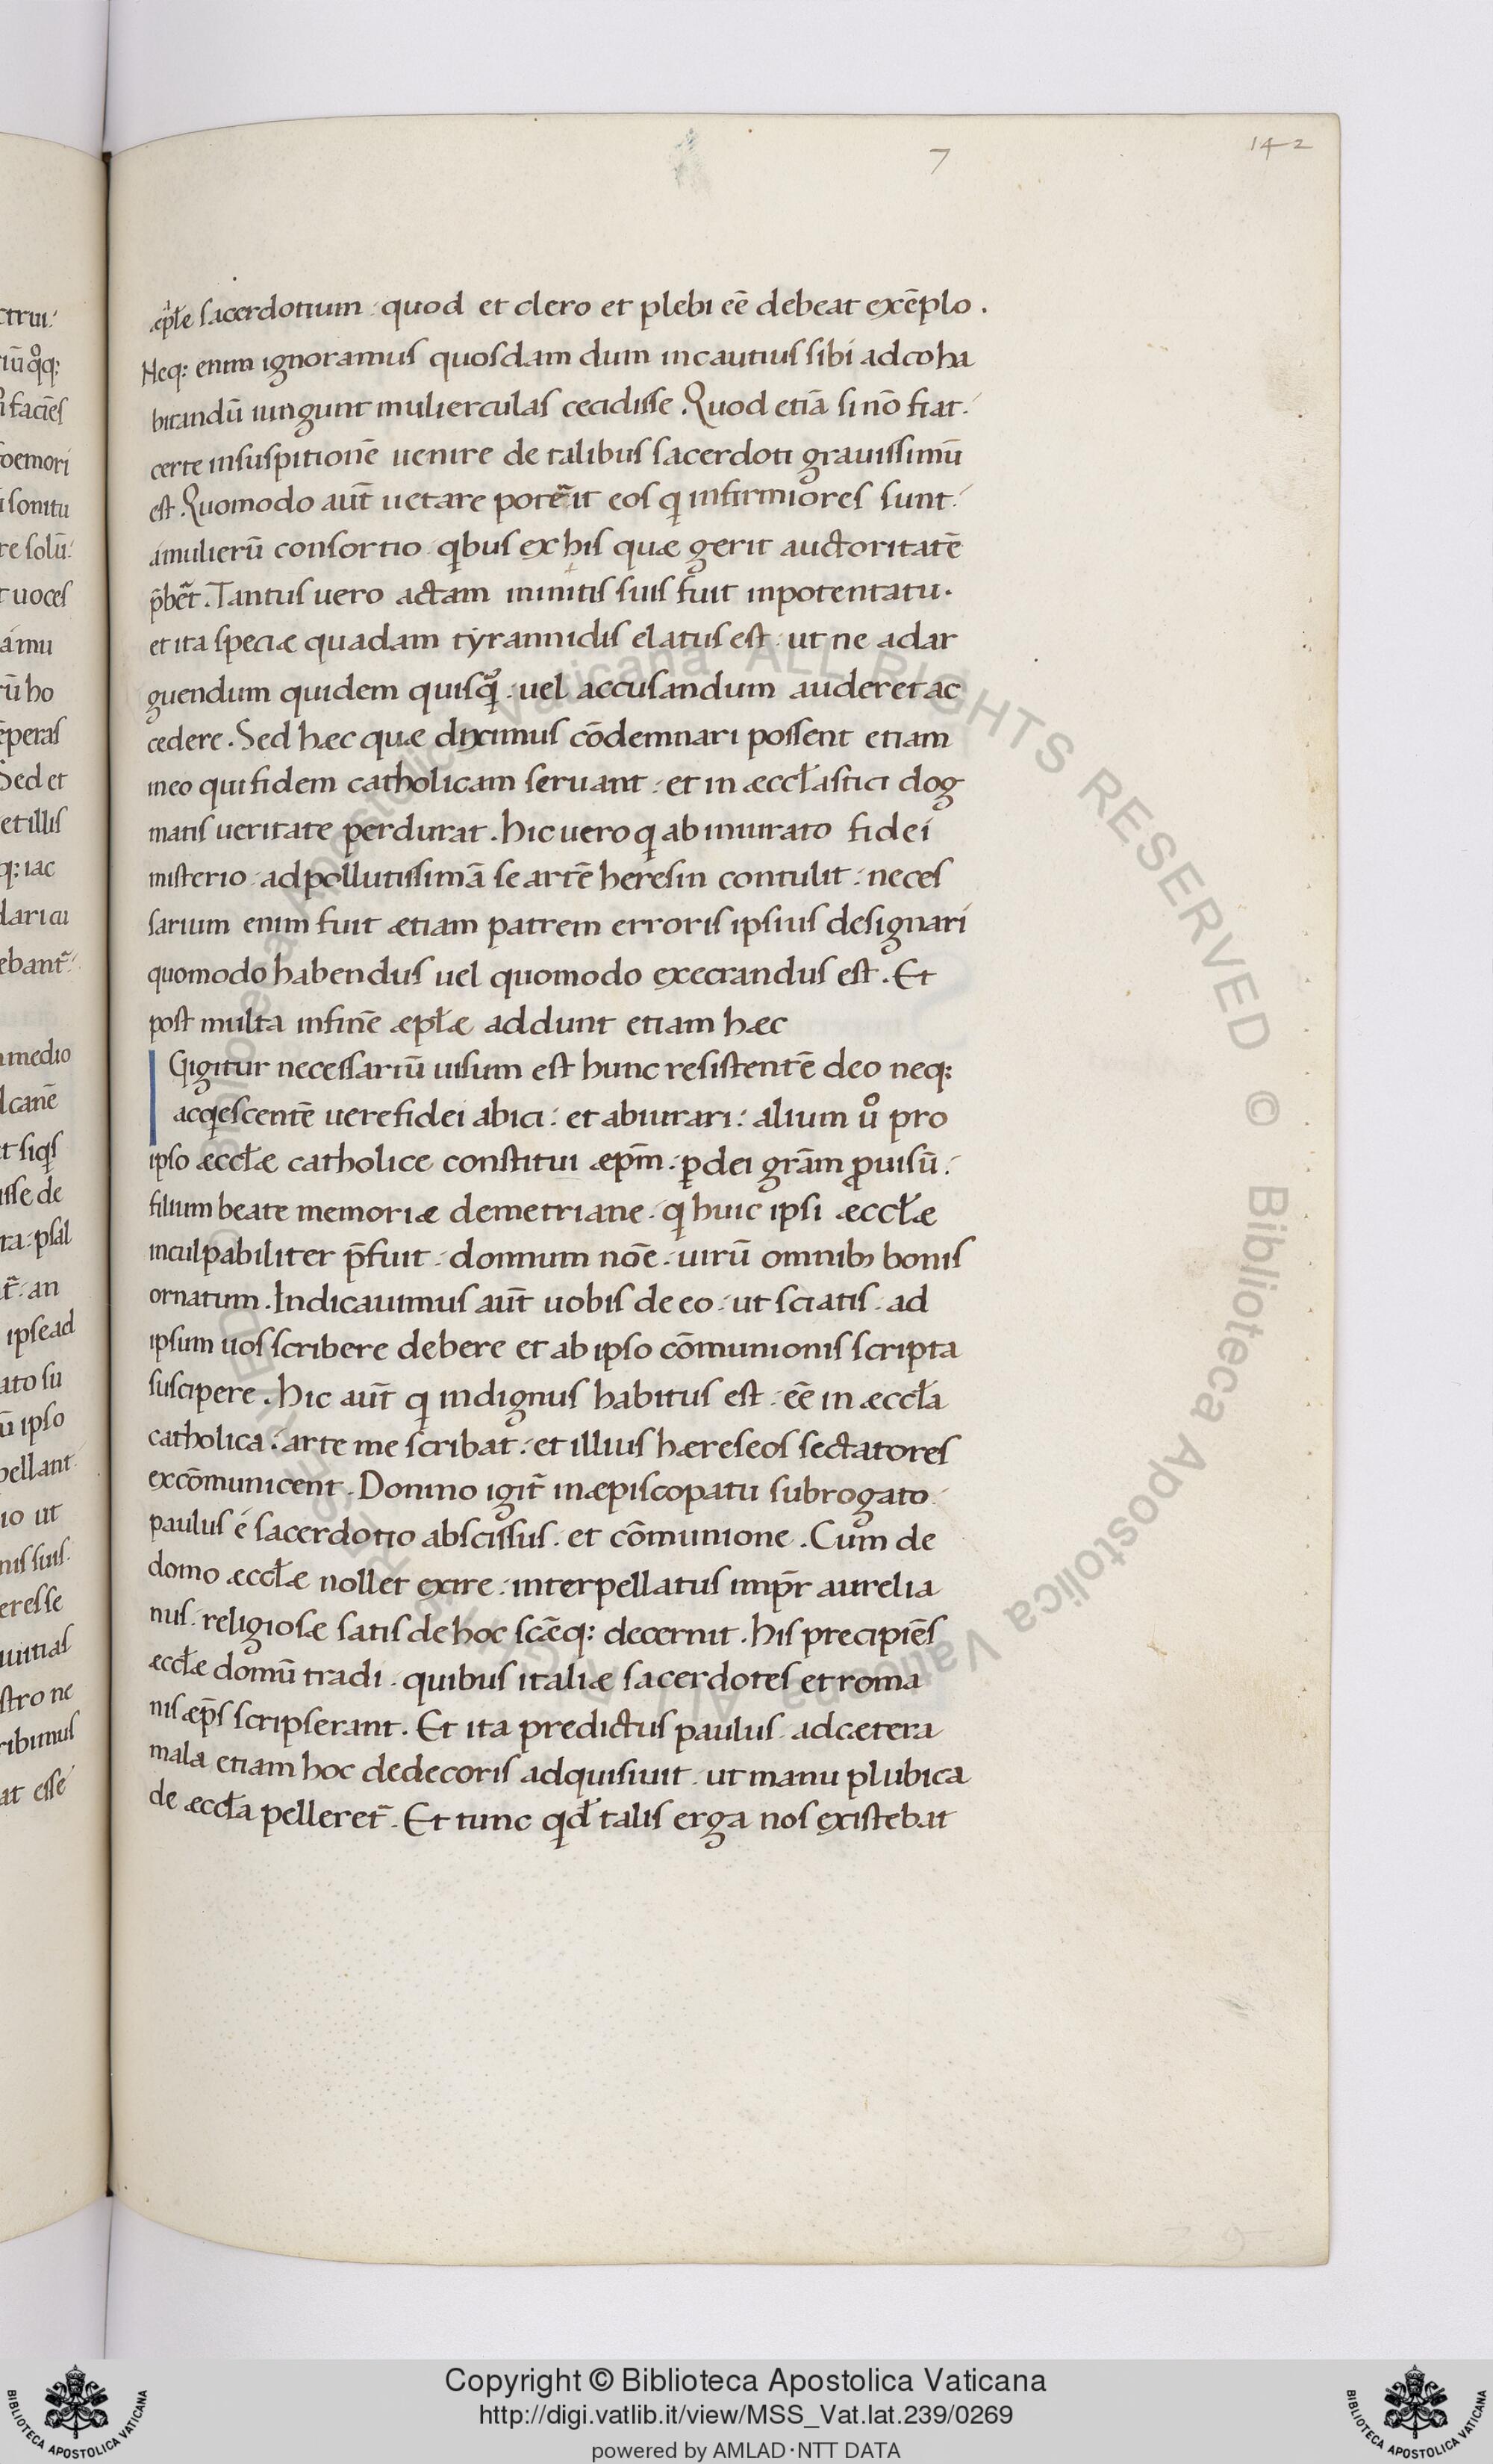 7
142
æpłe sacerdotium · quod et clero et plebi eē debeat exēplo .
Neq: enim ignoramus quosdam dum incautius sibi ad coha
bitandū iungunt mulierculas cecidisse . Quod etiā si nō fiat ·
certe in suspitionē uenire de talibus sacerdoti grauissimū
est . Quomodo aut̄ uetare poterit eos q infirmiores sunt ·
a mulierū consortio · qbus ex his quæ gerit auctoritatē
p̄bet̄ . Tantus uero actam inimitis suis fuit in potentatu .
et ita speciæ quadam tyrannidis elatus est · ut ne ad ar
guendum quidem quisq · uel accusandum auderet ac
cedere . Sed hæc quæ diximus cōdemnari possent etiam
in eo qui fidem catholicam seruant · et in æccłastici dog
matis ueritate perdurat . hic uero q ab iniurato fidei
misterio · ad pollutissimā se artē heresin contulit · neces
sarium enim fuit ætiam patrem erroris ipsius designari
quomodo habendus uel quomodo execrandus est . Et
post multa in finē æpłæ addunt etiam hæc
IGigitur necessariū uisum est hunc resistentē deo neq:
acqescentē uere fidei abici · et abiurari · alium uº pro
ipso æccłæ catholice constitui æpm̄ · p dei grām puisū ·
filium beate memoriæ demetriane · q huic ipsi æccłæ
inculpabiliter p̄fuit · domnum noē · uirū omnib; bonis
ornatum . Indicauimus aut̄ uobis de eo · ut sciatis · ad
ipsum uos scribere debere et ab ipso cōmunionis scripta
suscipere . hic aut̄ q indignus habitus est · eē in æccła
catholica · arte me scribat · et illius hæreseos sectatores
excōmunicent . Domno igit̄ in æpiscopatu subrogato ·
paulus é sacerdotio abscissus · et cōmunione . Cum de
domo æccłæ nollet exire · interpellatus imp̄r aurelia
nus · religiosæ satis de hoc scǣq: decernit . his precipiēs
æccłæ domū tradi · quibus italiæ sacerdotes et roma
nis æp̄s scripserant . Et ita predictus paulus · ad cætera
mala etiam hoc dedecoris adquisiuit · ut manu plubica
de æccła pelleret̄ . Et tunc qđ talis erga nos existebat
Copyright © Biblioteca Apostolica Vaticana
http://digi.vatlib.it/view/MSS_Vat.lat.239/0269
powered by AMLAD·NTT DATA
BIBLIOTECA APOSTOLICA VATICANA
BIBLIOTECA APOSTOLICA VATICANA